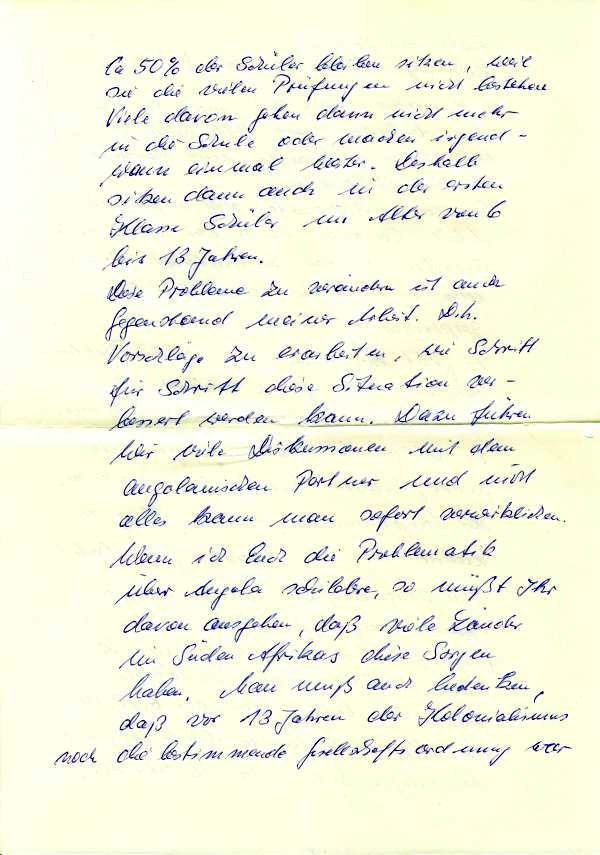 Ca 50% der Schüler bleiben sitzen, weil
sie die vielen Prüfungen nicht bestehen
Viele davon gehen dann nicht mehr
in die Schule oder machen irgend-
wann einmal weiter. Deshalb
sitzen dann auch in der ersten
Klasse Schüler im Alter von 6
bis 13 Jahren.
Diese Probleme zu verändern ist auch
Gegenstand meiner Arbeit. D.h.
Vorschläge zu erarbeiten, wie Schritt
für Schritt diese Situation ver-
bessert werden kann. Dazu führen
wir viele Diskussionen mit dem
angolanischen Partner und nicht
alles kann man sofort verwirklichen.
Wenn ich Euch die Problematik
über Angola schildere, so müßt Ihr
davon ausgehen, daß viele Länder
im Süden Afrikas diese Sorgen
haben. Man muß auch bedenken,
daß vor 13 Jahren der Kolonialismus
noch die bestimmende Gesellschaftsordnung war